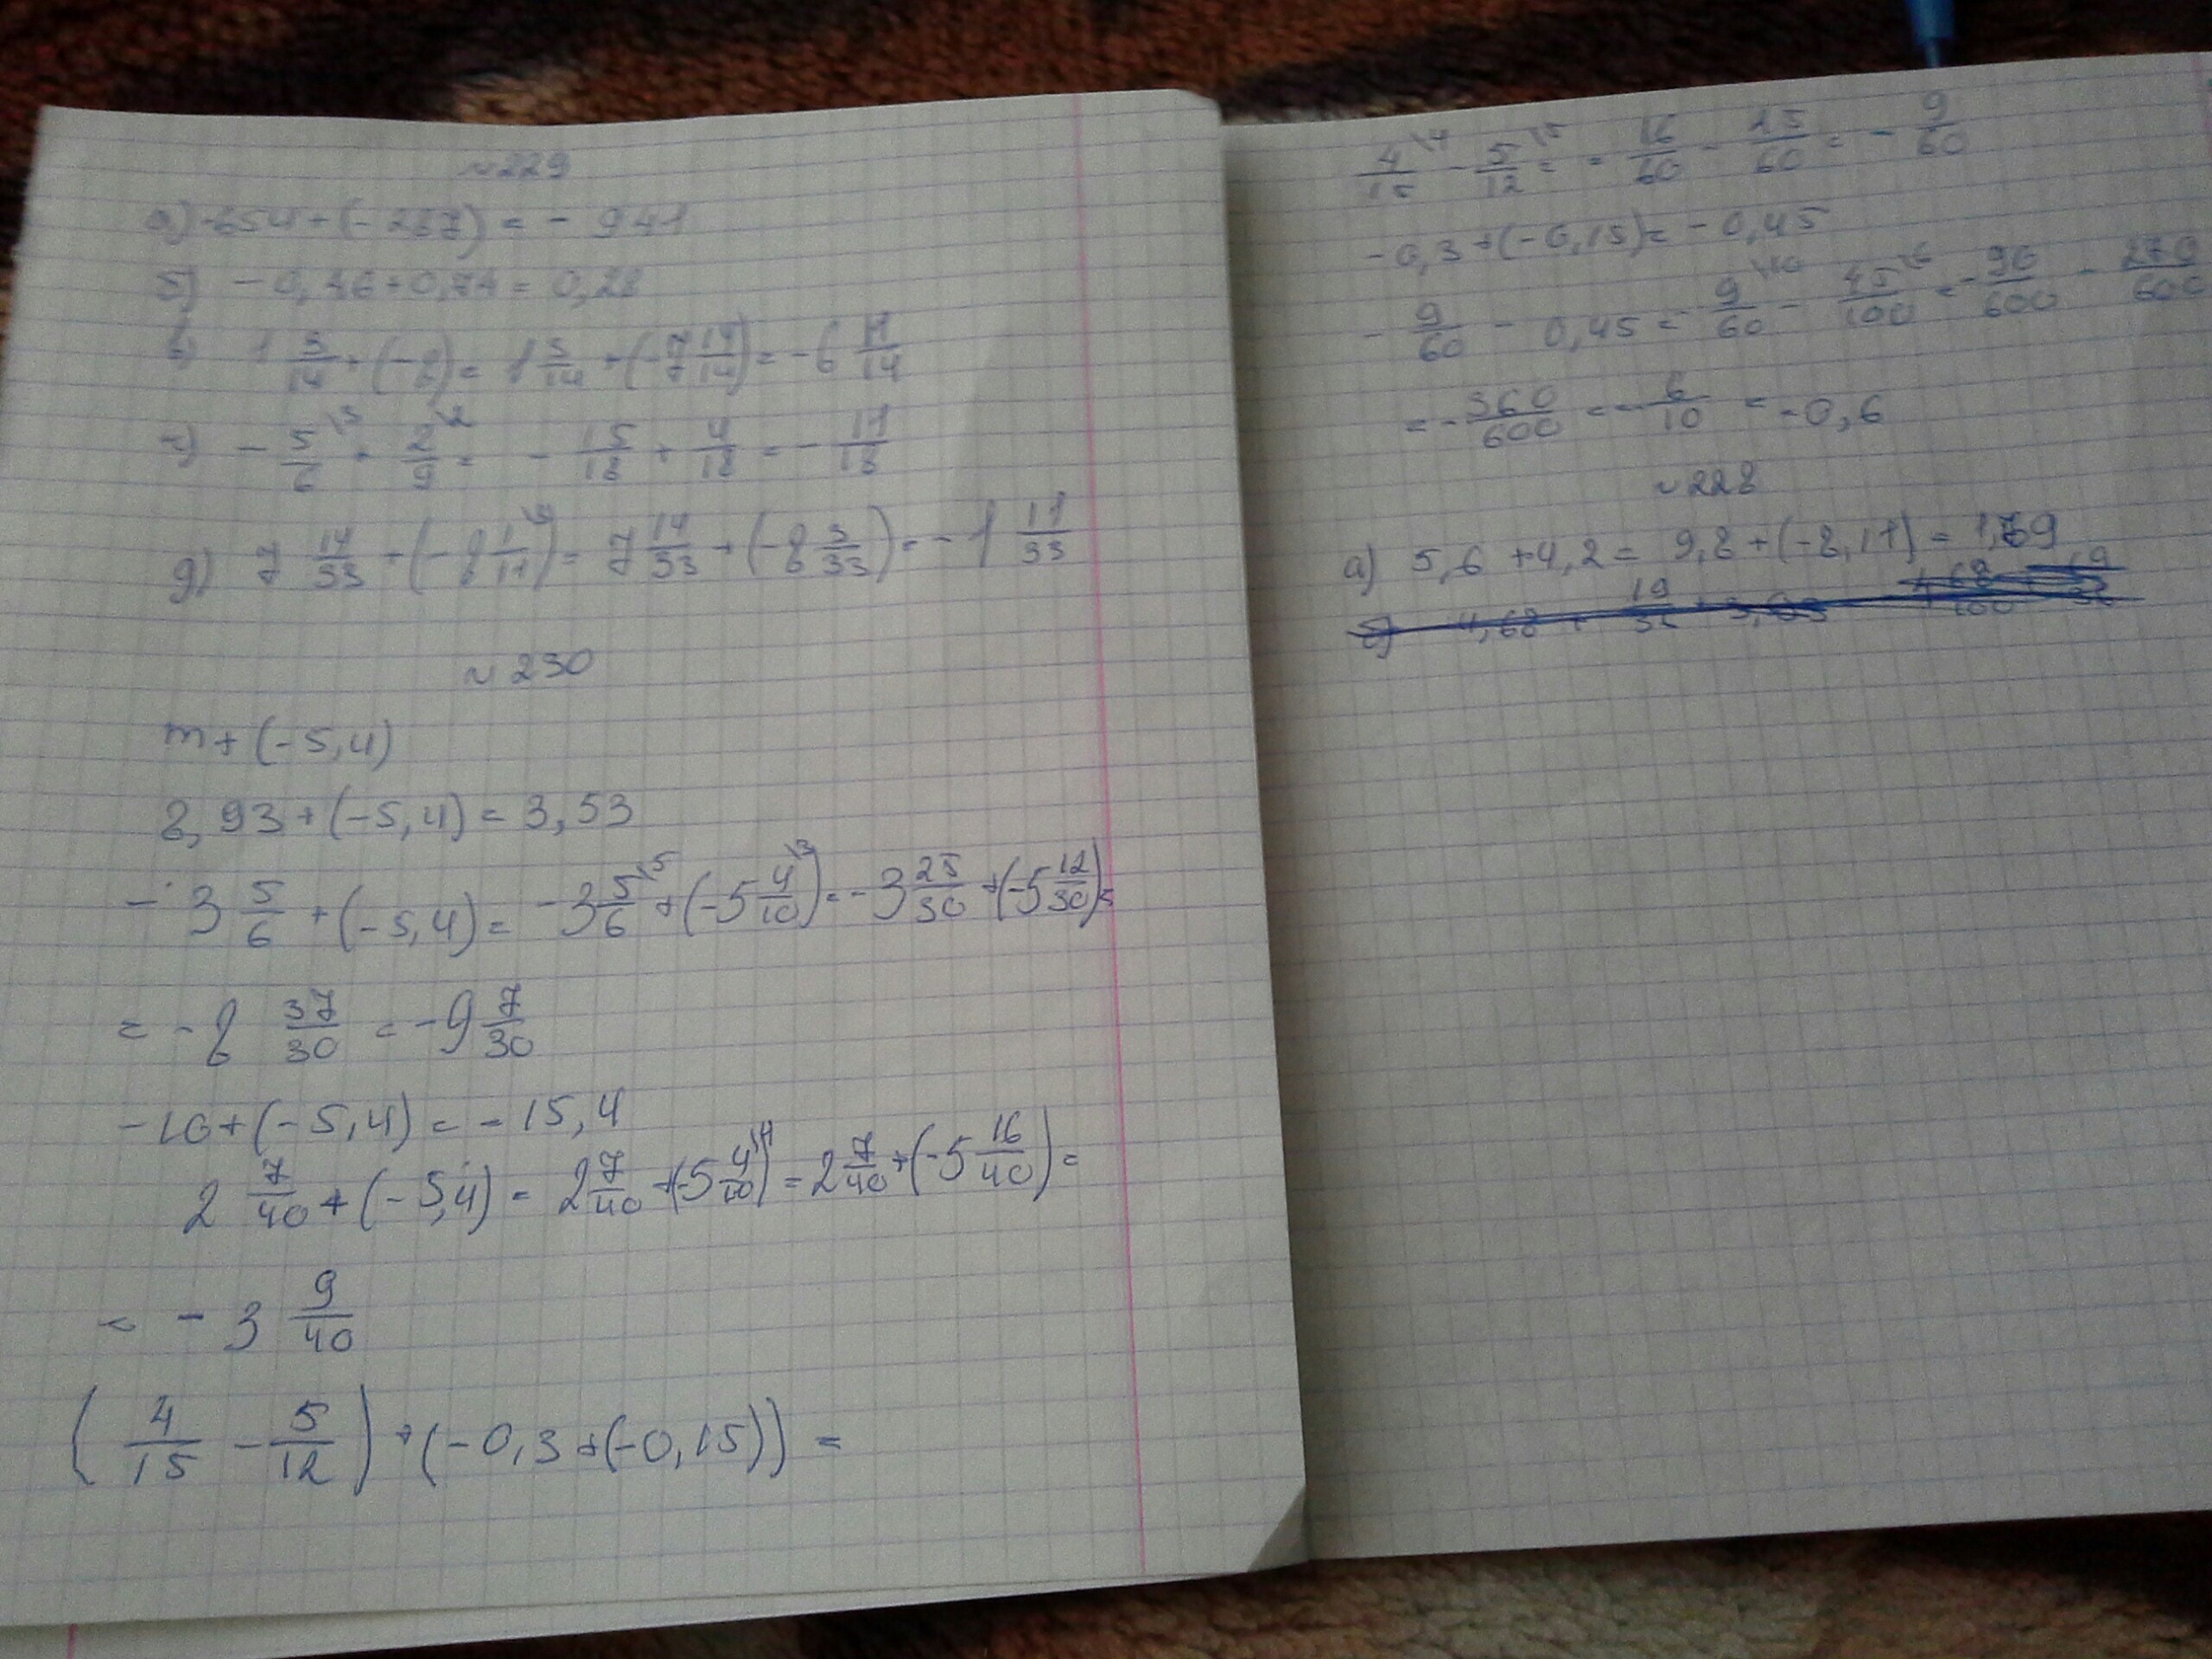 ~229
а) -654+(-287) = - 941
б) - 0,46+0,74 = 0,28
в) 1 5/14 + (-8) = 1 5/14 + (-7 14/14) = -6 9/14
г) - 5/6 \3 + 2/9 \2 = - 15/18 + 4/18 = - 11/18
д) 7 14/33 + (-8 1/11 \3) = 7 14/33 + (-8 3/33) = -1 11/33
~230
m+(-5,4)
8,93+(-5,4) = 3,53
- 3 5/6 + (-5,4) = -3 5/6 \5 + (-5 4/10 \3) = -3 25/30 + (-5 12/30) =
= - 8 37/30 = -9 7/30
-10+(-5,4) = - 15,4
2 7/40 + (-5,4) = 2 7/40 + (-5 4/10 \4) = 2 7/40 + (-5 16/40) =
= - 3 9/40
(4/15 - 5/12) + (-0,3+(-0,15)) =
4/15 \4 - 5/12 \5 = = 16/60 - 25/60 = - 9/60
-0,3+(-0,15) = -0,45
- 9/60 - 0,45 = - 9/60 \10 - 45/100 \6 = - 90/600 - 270/600
= - 360/600 = - 6/10 = -0,6
~228
а) 5,6 +4,2 = 9,8+(-8,11) = 1,69